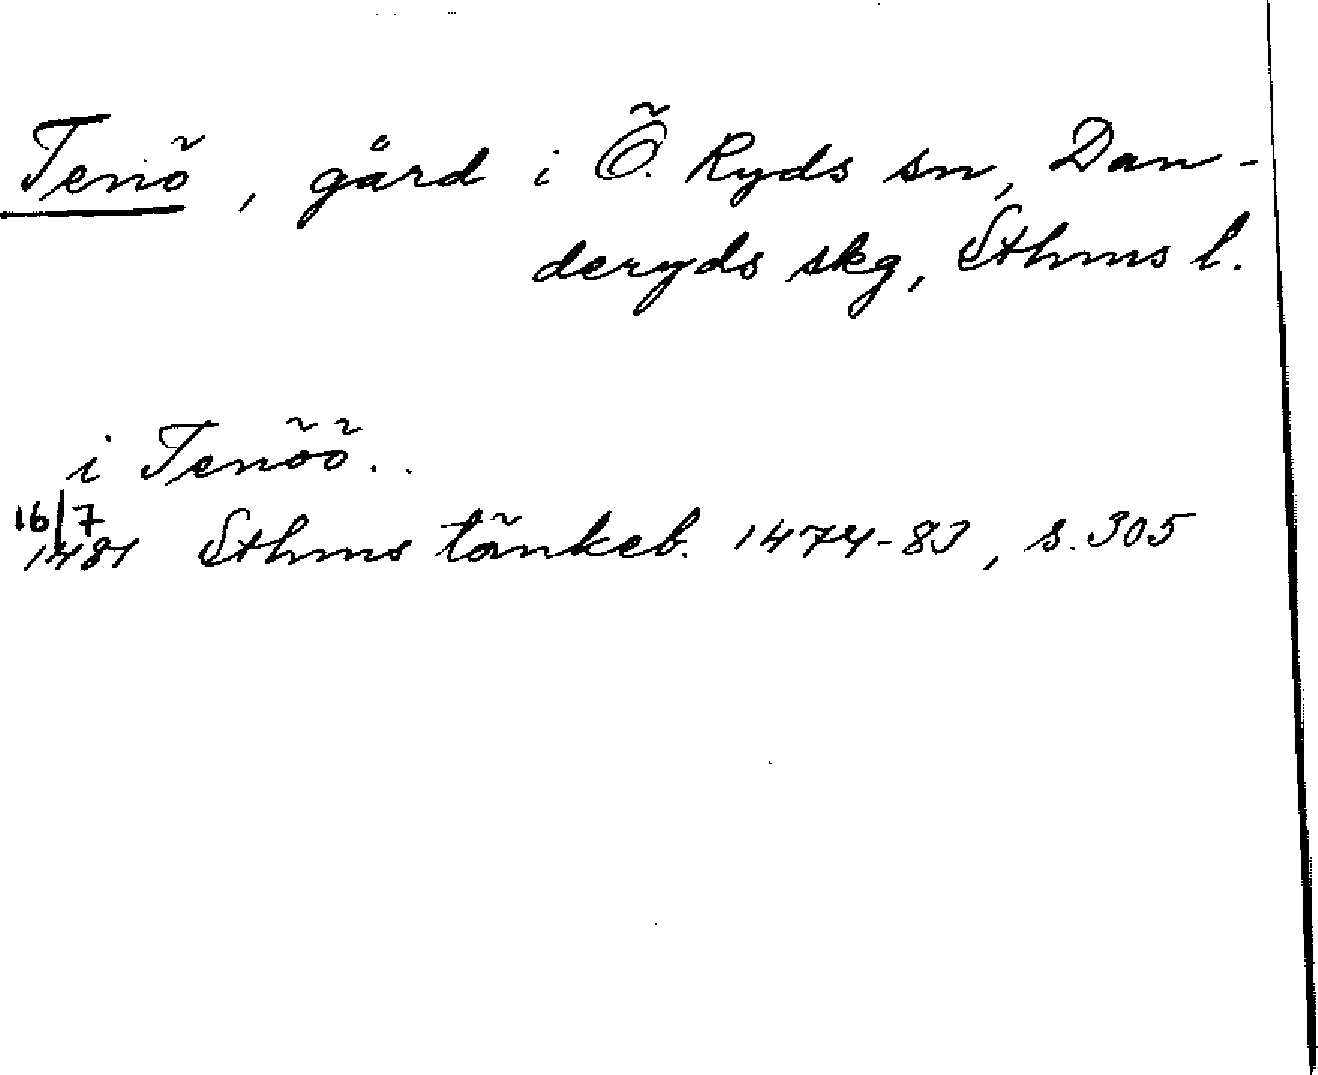 Tenö, gård i Ö. Ryds sn, Dan-
deryds skg, Sthms l.
i Tenöö..
16/7
1481 Sthms tänkeb. 1474-83, s. 305